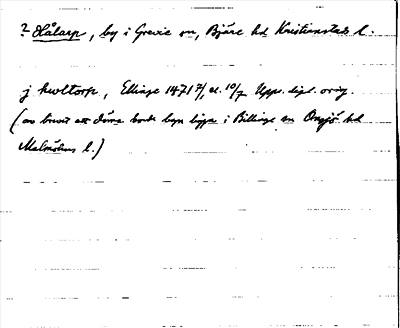 ? Hålarp, by i Grevie sn, Bjäre hd Kristianstads l.
j hwltorp, Ellinge 1471 7/, el. 10/7 Upps. dipl. orig.
(av brevet att döma borde byn ligga i Billinge sn Onsjö hd
Malmöhus l.)